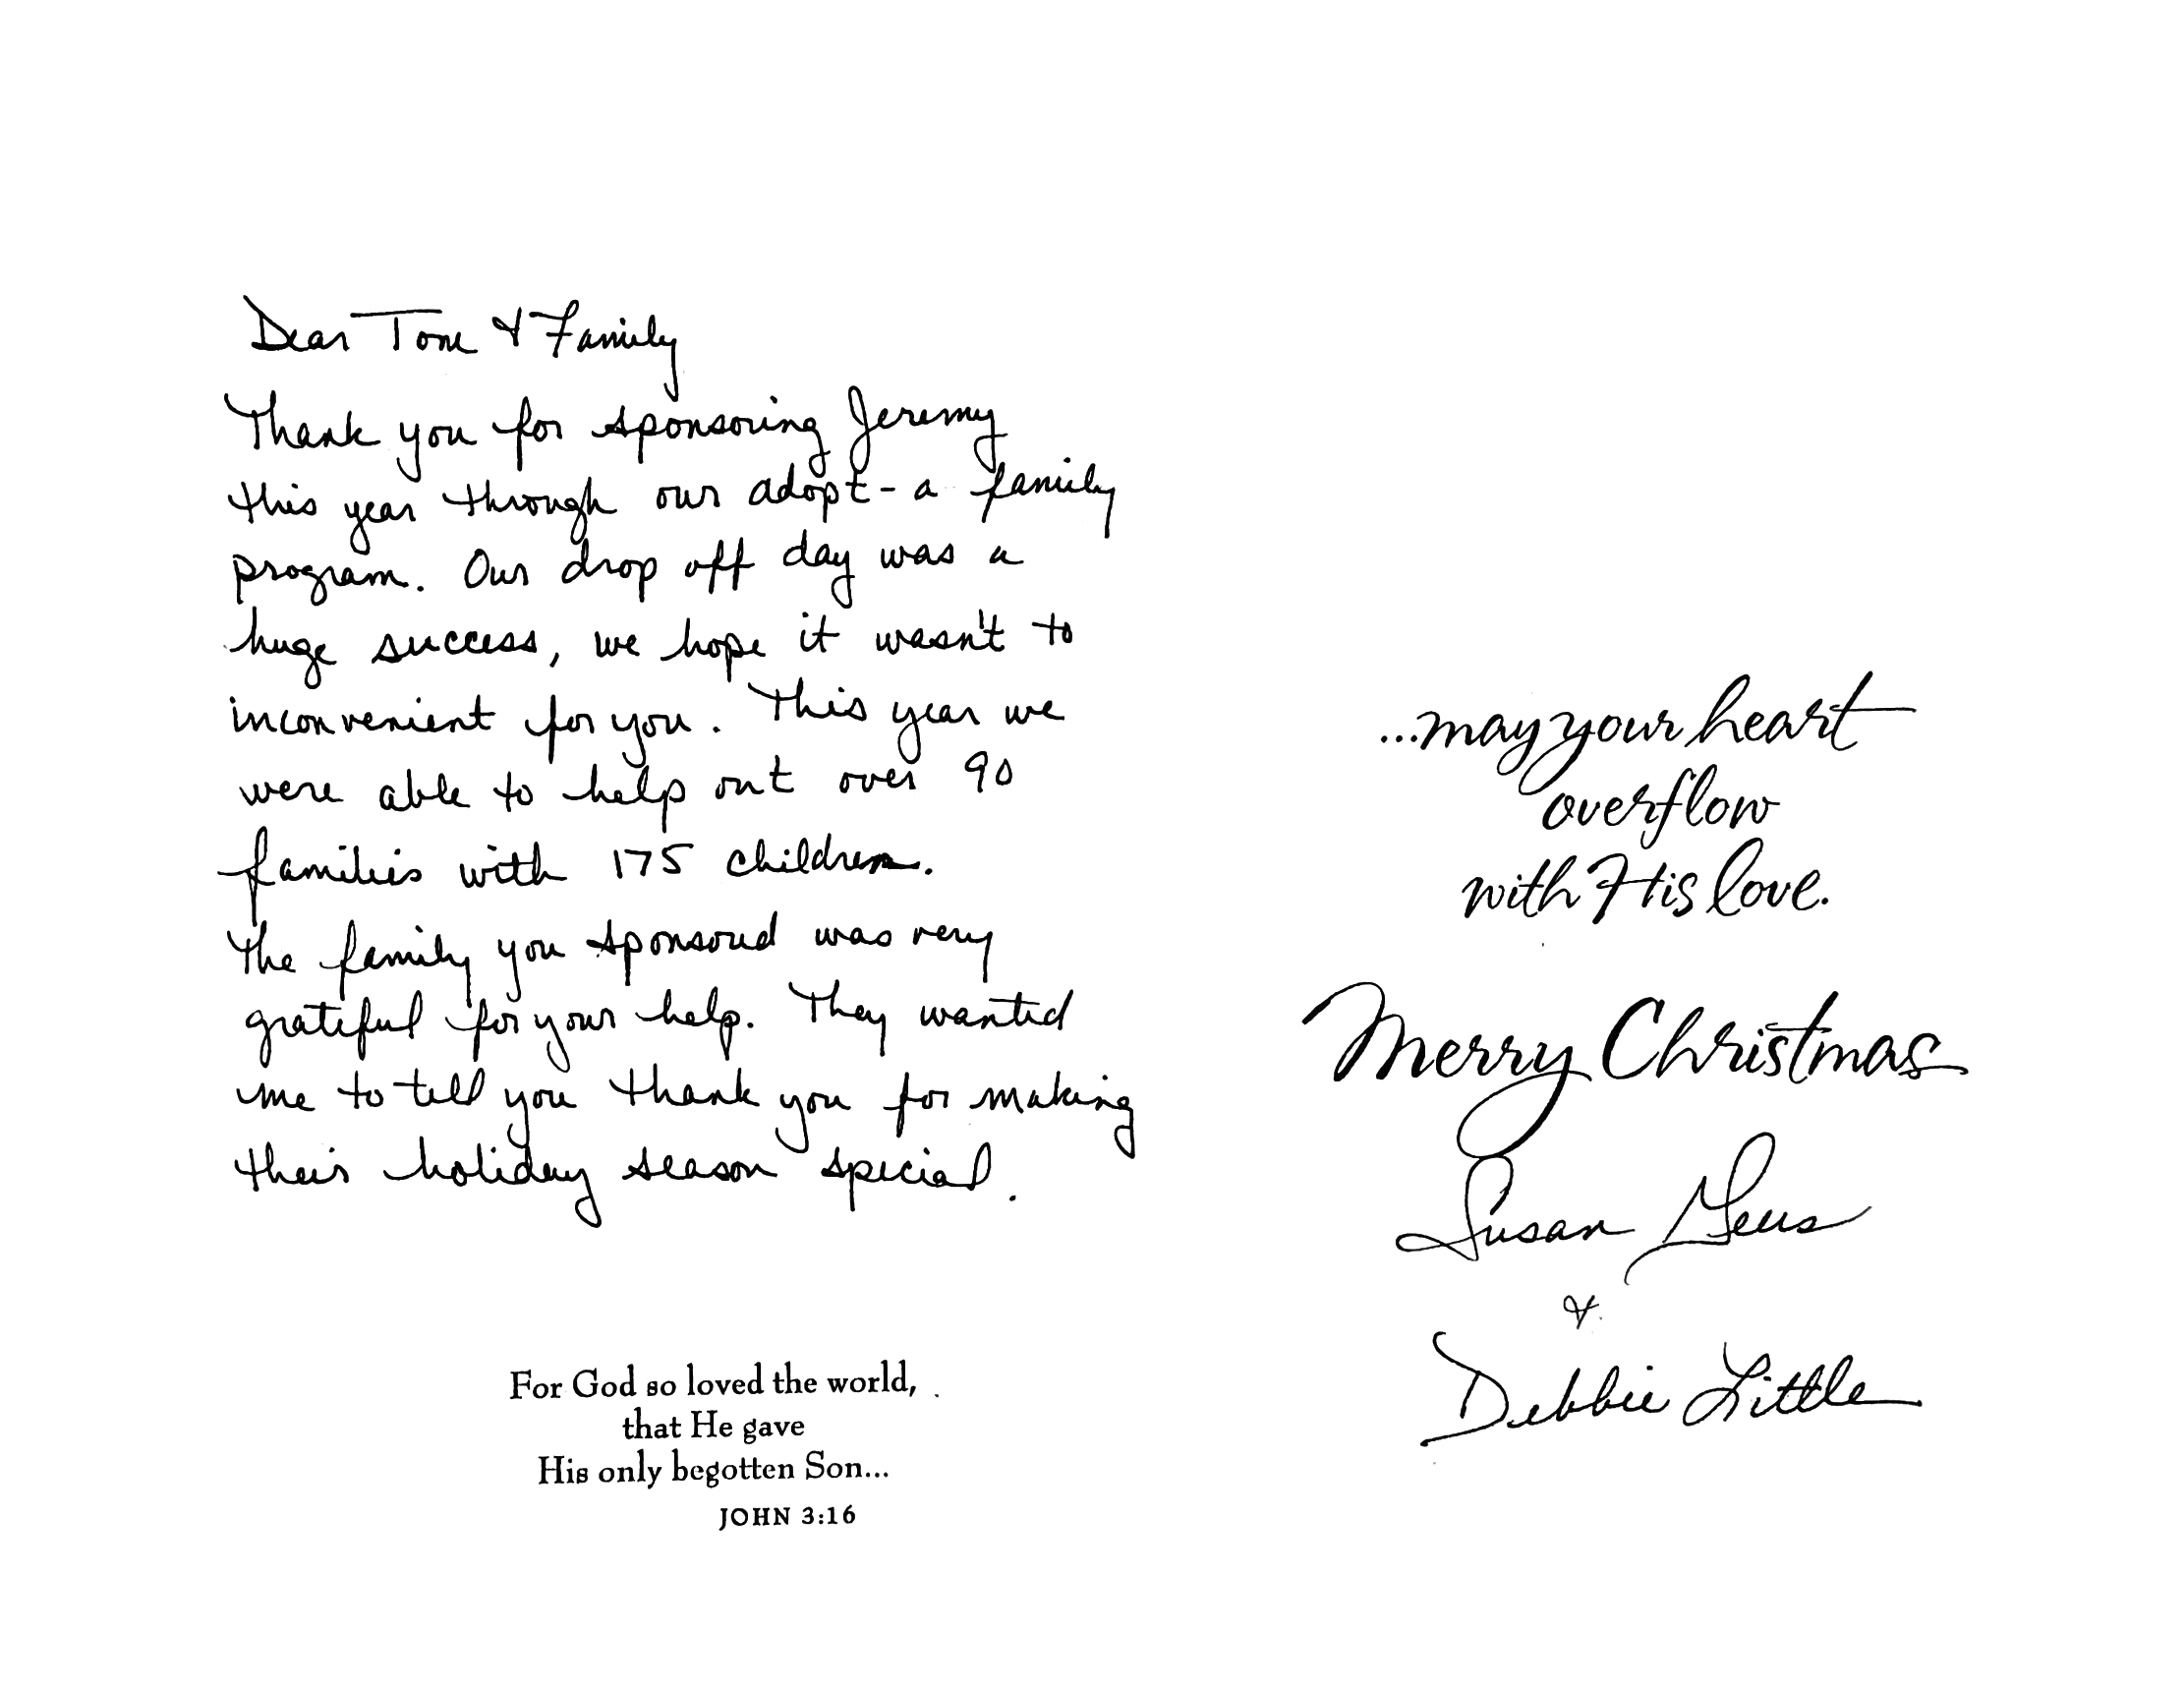 Dear Tom & Family
Thank you for sponsoring Jeremy
this year through our adopt-a family
program. Our drop off day was a
huge success, we hope it wasn't to
inconvenient for you. This year we
were able to help out over 90
families with 175 children.
The family you sponsored was very
grateful for your help. They wanted
me to tell you thank you for making
their holiday season special.
For God so loved the world,
that He gave
His only begotten Son...
JOHN 3:16
...may your heart
overflow
with His love.
Merry Christmas
Susan
&
Debbie Little